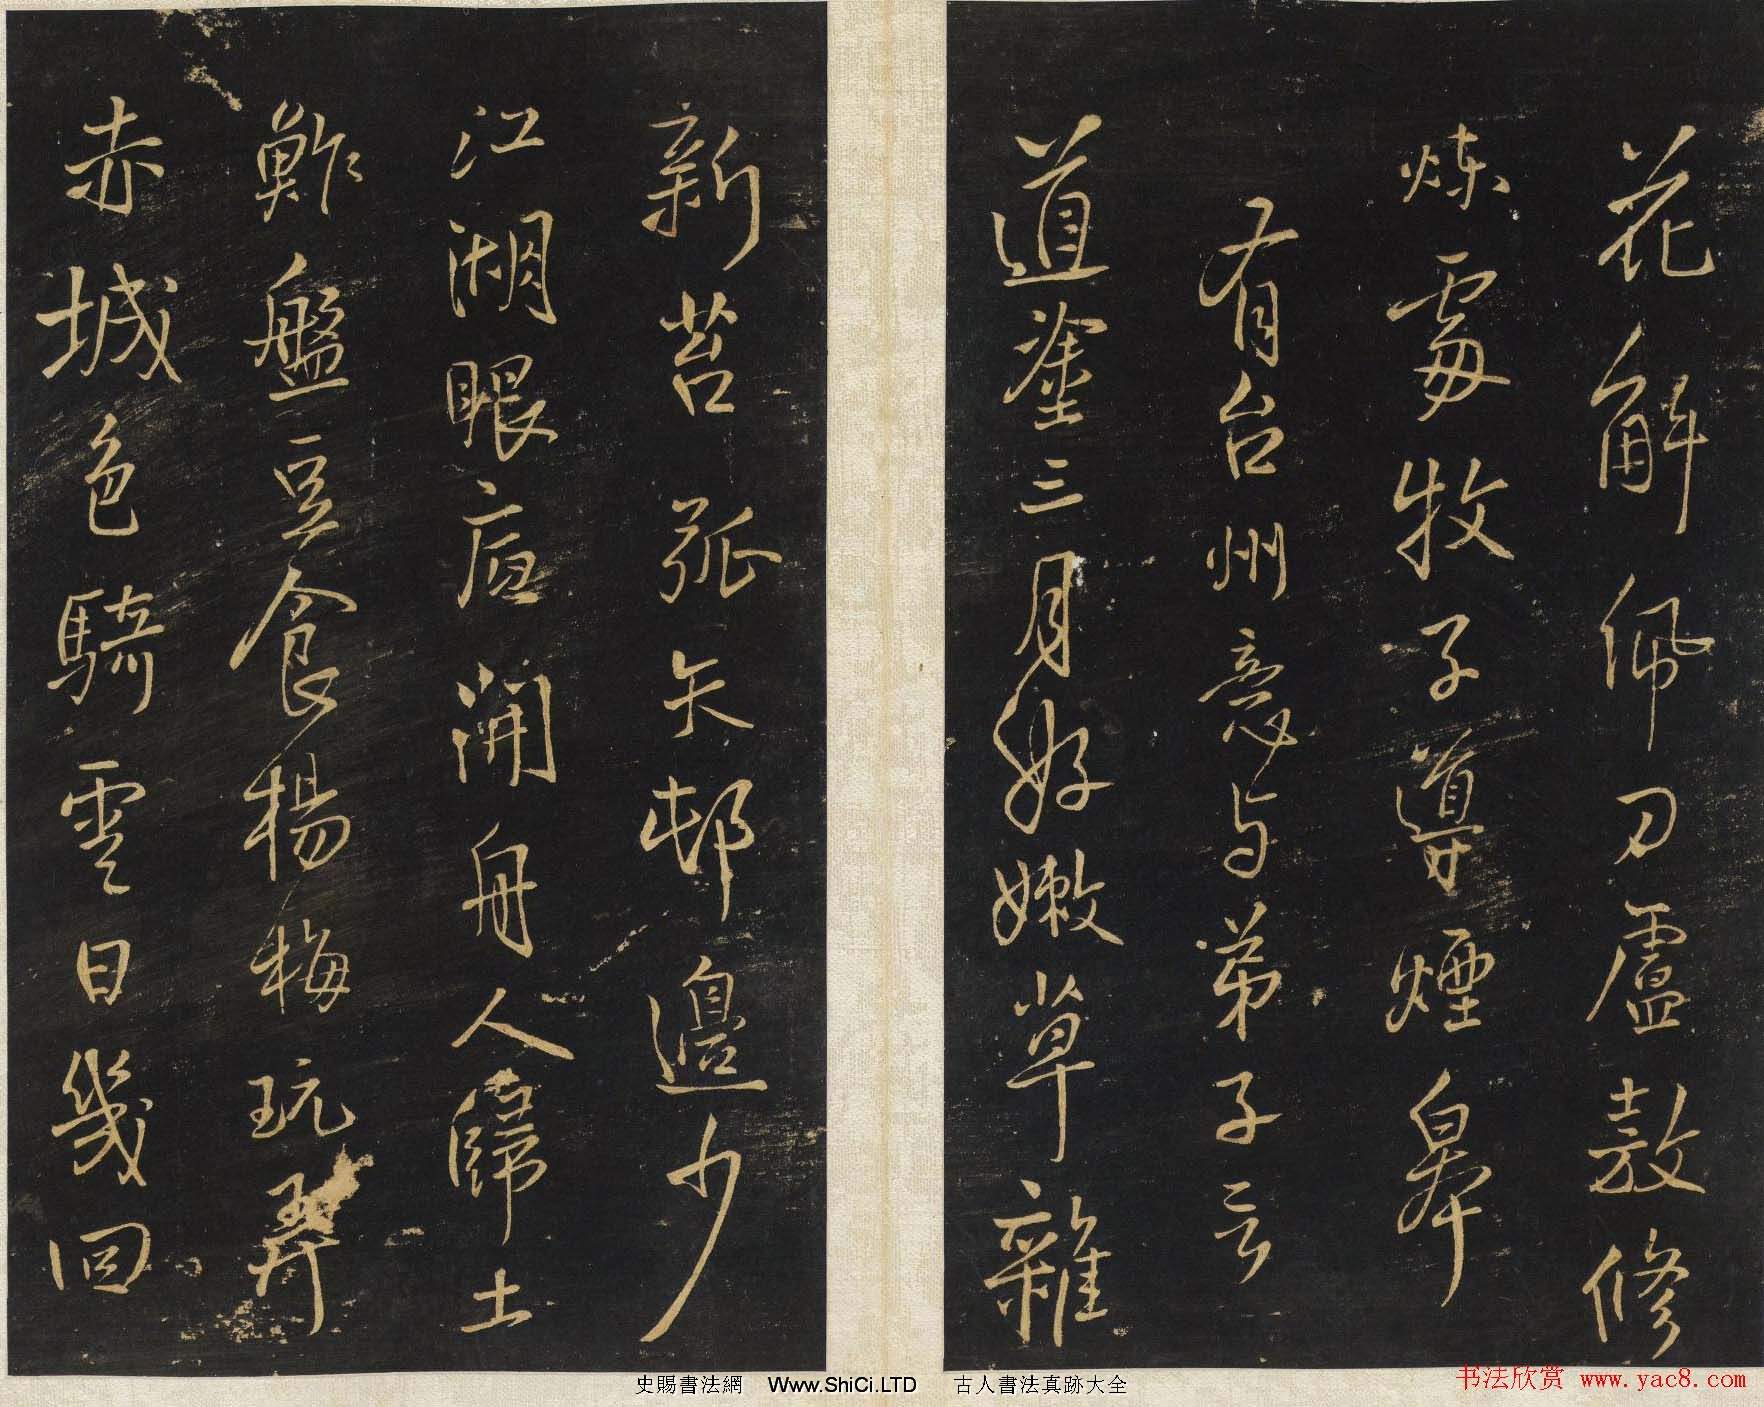 花解佩刀盧敖修
炼處牧子導煙皋
有台州意与弟子云
道塗三月好嫩草雜
新苔孤矢邨邊少
江湖眼底開舟人歸土
鮓盤豆食楊梅玩弄
赤城色騎雲日幾回
史賜書法網 Www.ShiCi.LTD 古人書法真跡大全
书法欣赏 www.yac8.com